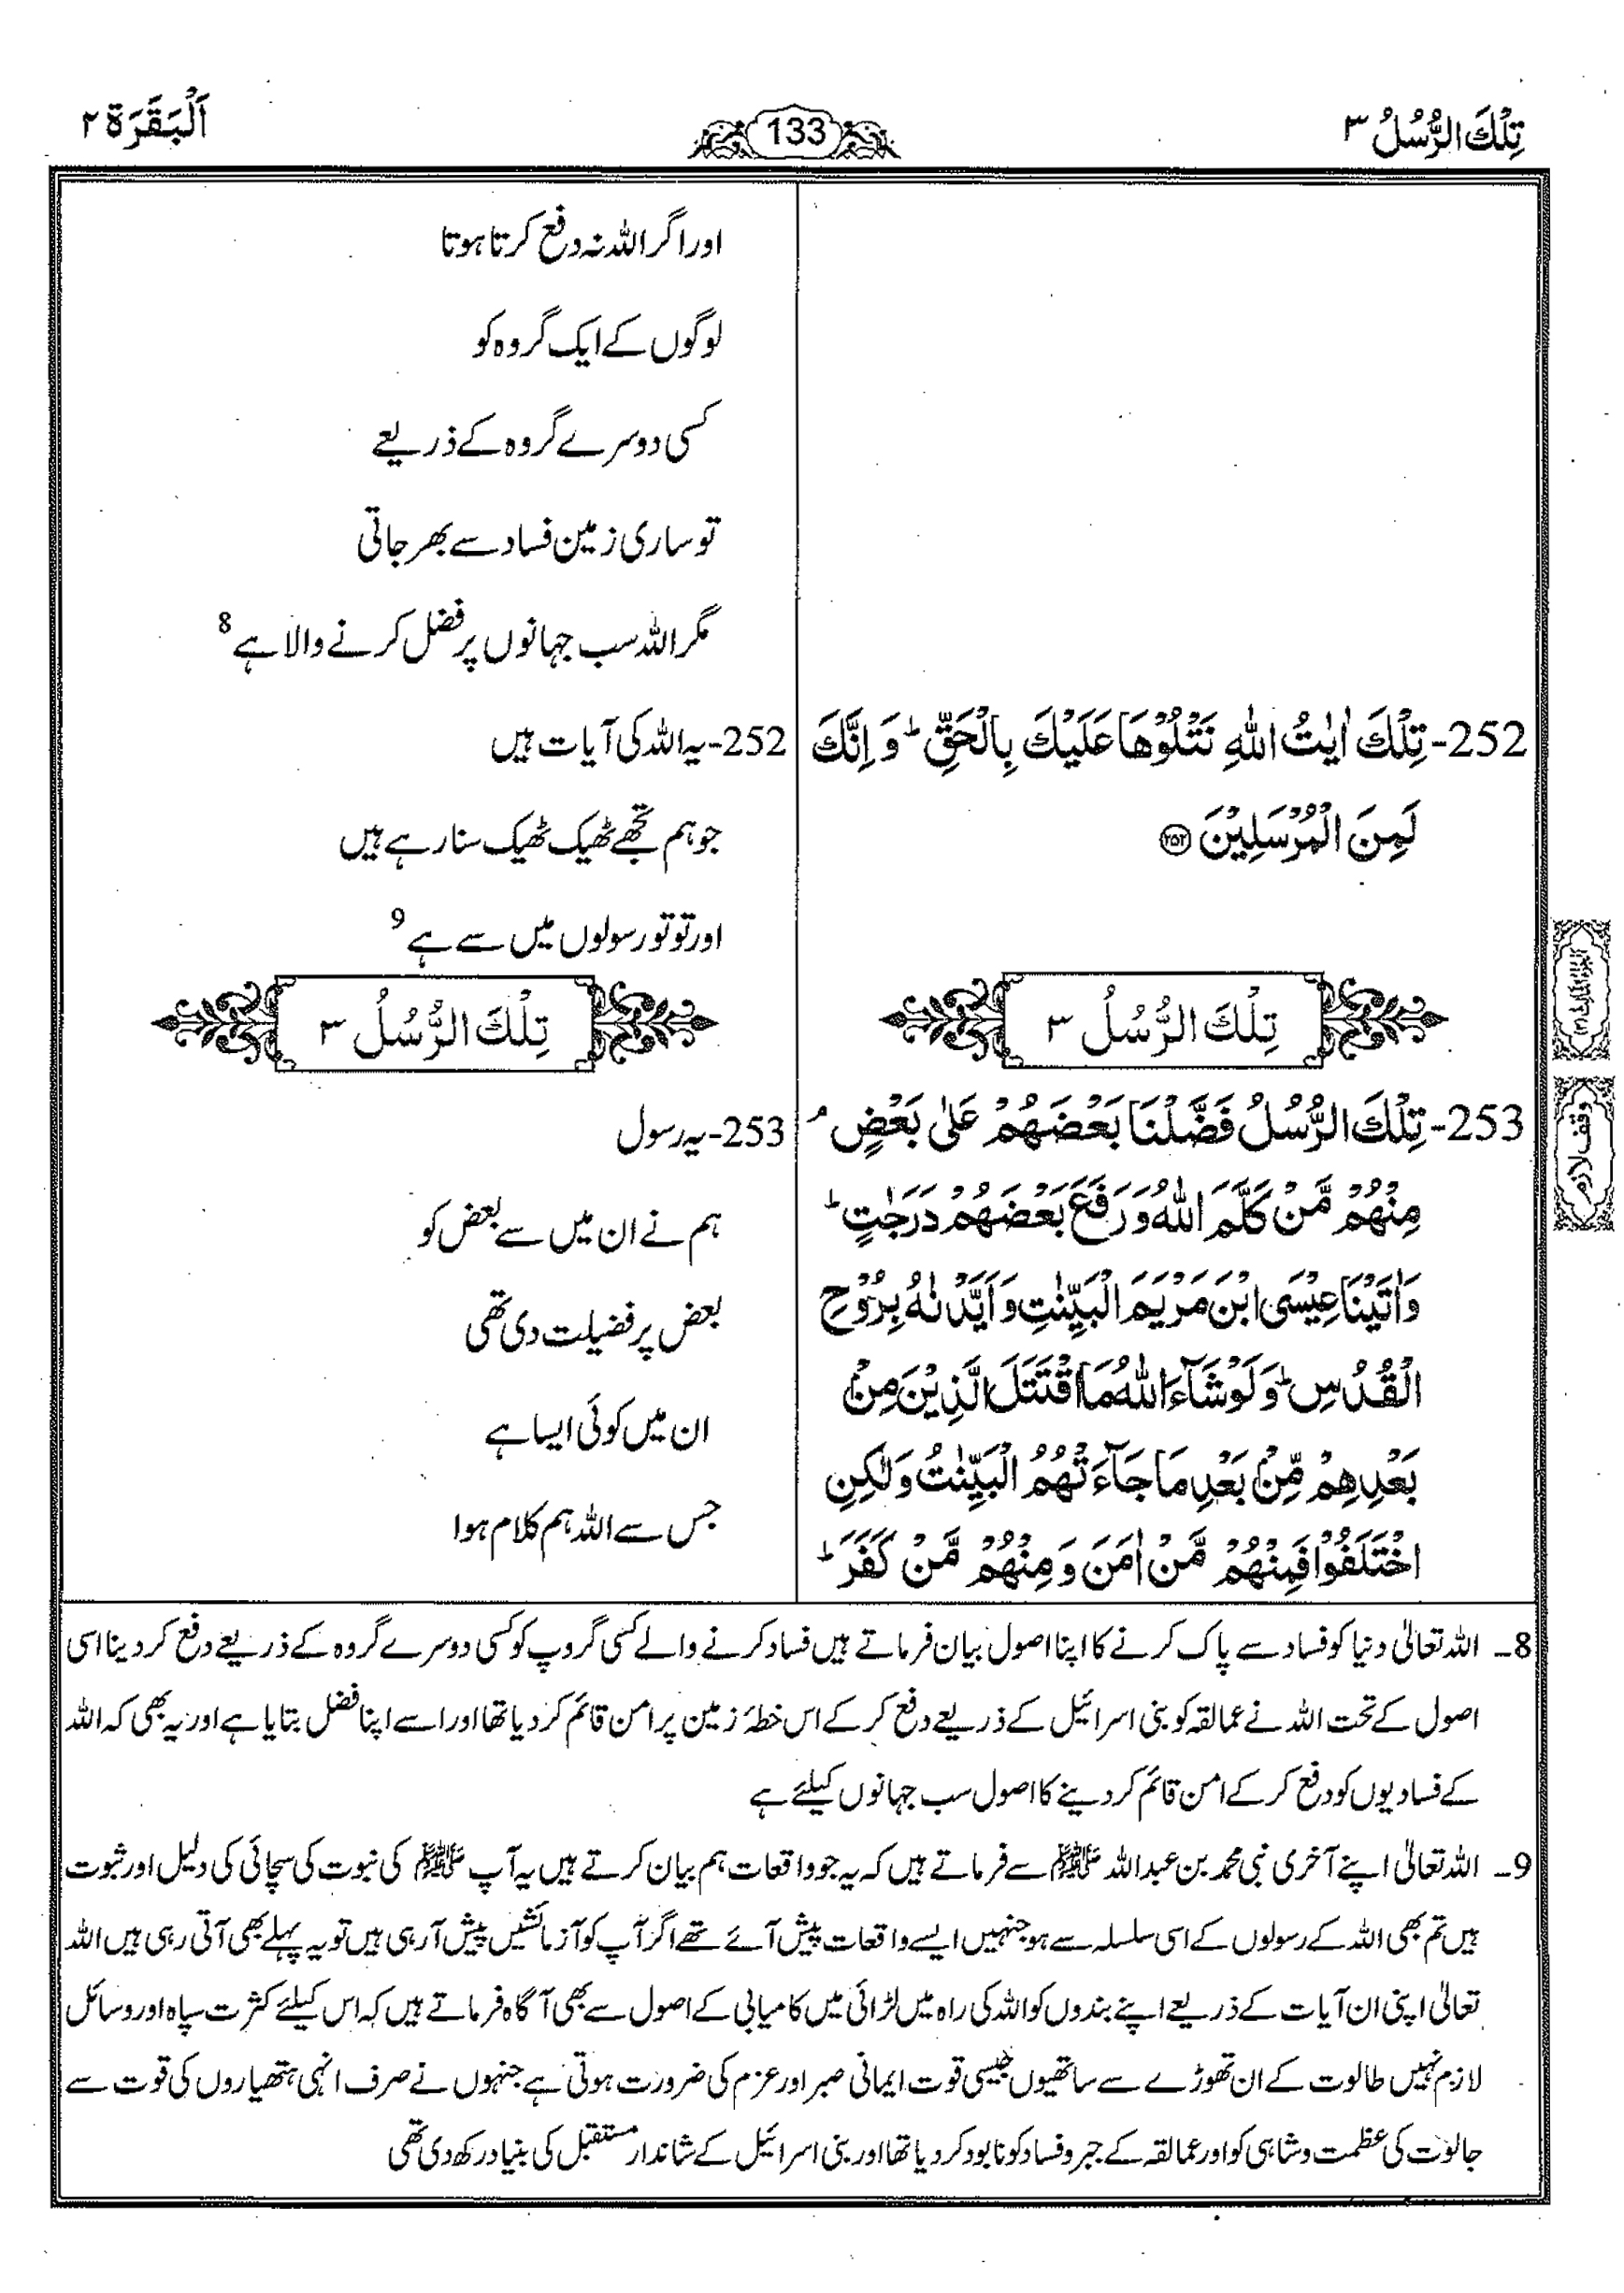 تِلْكَ الرُّسُلُ ٣
133
اَلْبَقَرَة ٢
252-تِلْكَ اٰيٰتُ اللّٰهِ نَتْلُوْهَا عَلَيْكَ بِالْحَقِّ ؕ وَ اِنَّكَ
لَمِنَ الْمُرْسَلِيْنَ ۝٢٥٢
تِلْكَ الرُّسُلُ ٣
253-تِلْكَ الرُّسُلُ فَضَّلْنَا بَعْضَهُمْ عَلٰى بَعْضٍ ۘ
مِنْهُمْ مَّنْ كَلَّمَ اللّٰهُ وَرَفَعَ بَعْضَهُمْ دَرَجٰتٍ ؕ
وَاٰتَيْنَا عِيْسَى ابْنَ مَرْيَمَ الْبَيِّنٰتِ وَاَيَّدْنٰهُ بِرُوْحِ
الْقُدُسِ ؕ وَلَوْ شَآءَ اللّٰهُ مَا اقْتَتَلَ الَّذِيْنَ مِنْۢ
بَعْدِهِمْ مِّنْۢ بَعْدِ مَا جَآءَتْهُمُ الْبَيِّنٰتُ وَلٰكِنِ
اخْتَلَفُوْا فَمِنْهُمْ مَّنْ اٰمَنَ وَ مِنْهُمْ مَّنْ كَفَرَ ؕ
اور اگر اللہ نہ دفع کرتا ہوتا
لوگوں کے ایک گروہ کو
کسی دوسرے گروہ کے ذریعے
تو ساری زمین فساد سے بھر جاتی
مگر اللہ سب جہانوں پر فضل کرنے والا ہے 8
252-یہ اللہ کی آیات ہیں
جو ہم تجھے ٹھیک ٹھیک سنا رہے ہیں
اور تو تو رسولوں میں سے ہے 9
تِلْكَ الرُّسُلُ ٣
253-یہ رسول
ہم نے ان میں سے بعض کو
بعض پر فضیلت دی تھی
ان میں کوئی ایسا ہے
جس سے اللہ ہم کلام ہوا
وقف لازم
8۔ اللہ تعالیٰ دنیا کو فساد سے پاک کرنے کا اپنا اصول بیان فرماتے ہیں فساد کرنے والے کسی گروپ کو کسی دوسرے گروہ کے ذریعے دفع کر دینا اسی
اصول کے تحت اللہ نے عمالقہ کو بنی اسرائیل کے ذریعے دفع کر کے اس خطہٴ زمین پر امن قائم کر دیا تھا اور اسے اپنا فضل بتایا ہے اور یہ بھی کہ اللہ
کے فسادیوں کو دفع کر کے امن قائم کر دینے کا اصول سب جہانوں کیلئے ہے
9۔ اللہ تعالیٰ اپنے آخری نبی محمد بن عبداللہ ﷺ سے فرماتے ہیں کہ یہ جو واقعات ہم بیان کرتے ہیں یہ آپ ﷺ کی نبوت کی سچائی کی دلیل اور ثبوت
ہیں تم بھی اللہ کے رسولوں کے اسی سلسلہ سے ہو جنہیں ایسے واقعات پیش آئے تھے اگر آپ کو آزمائشیں پیش آرہی ہیں تو یہ پہلے بھی آتی رہی ہیں اللہ
تعالیٰ اپنی ان آیات کے ذریعے اپنے بندوں کو اللہ کی راہ میں لڑائی میں کامیابی کے اصول سے بھی آگاہ فرماتے ہیں کہ اس کیلئے کثرت سپاہ اور وسائل
لازم نہیں طالوت کے ان تھوڑے سے ساتھیوں جیسی قوت ایمانی صبر اور عزم کی ضرورت ہوتی ہے جنہوں نے صرف انہی ہتھیاروں کی قوت سے
جالوت کی عظمت و شاہی کو اور عمالقہ کے جبر و فساد کو نابود کر دیا تھا اور بنی اسرائیل کے شاندار مستقبل کی بنیاد رکھ دی تھی